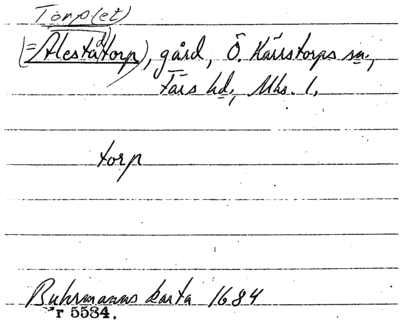 Torp(et)
(=Alestatorp), gård, Ö. Kärrstorps sn,
Färs hd, Mhs. l.
torp
Buhrmanns karta 1684
r 5584.